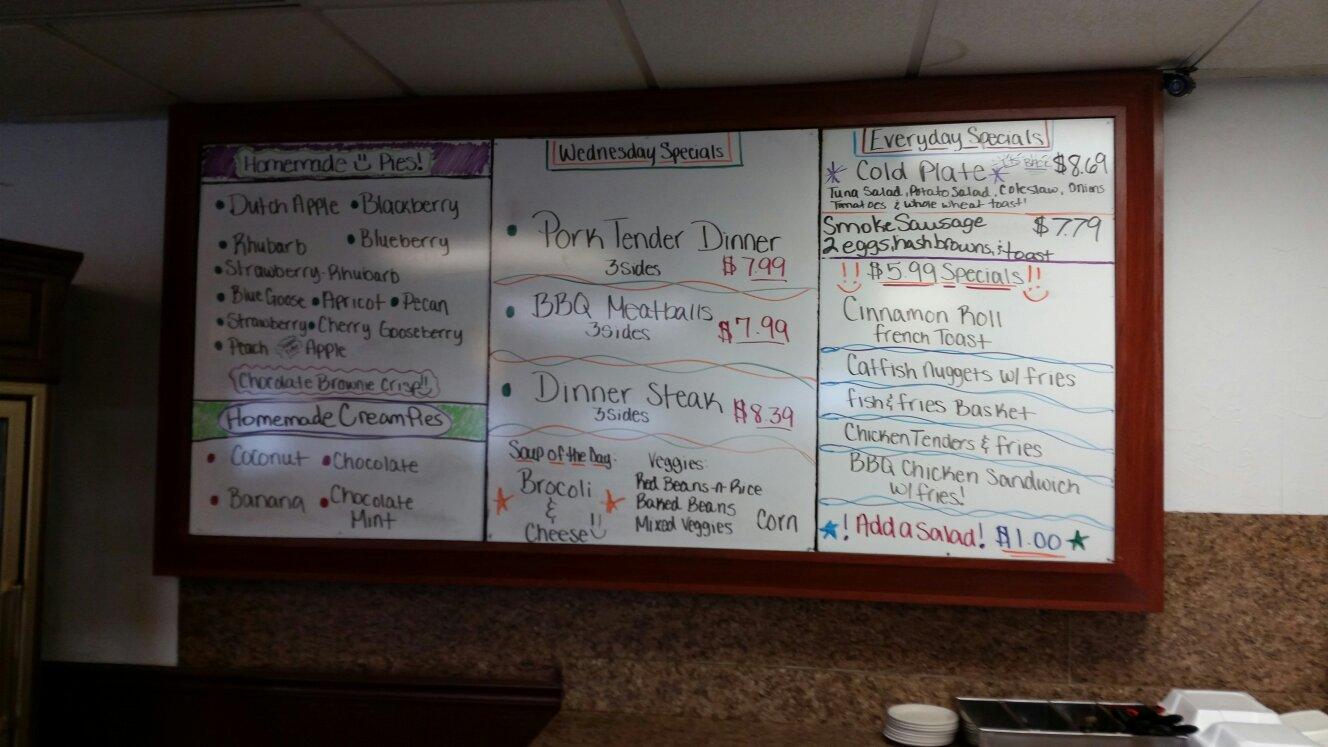 Homemade Pies!
• Dutch Apple • Blackberry
• Rhubarb • Blueberry
• Strawberry-Rhubarb
• Blue Goose • Apricot • Pecan
• Strawberry • Cherry Gooseberry
• Peach Apple
Chocolate Brownie Crisp!!
Homemade Cream Pies
• Coconut • Chocolate
• Banana • Chocolate
Mint
Wednesday Specials
• Pork Tender Dinner
3 Sides $7.99
• BBQ Meatballs
3 Sides $7.99
• Dinner Steak
3 Sides $8.39
Soup of the Day:
Brocoli
&
Cheese!!
Veggies:
Red Beans-n-Rice
Baked Beans
Mixed Veggies Corn
Everyday Specials
Cold Plate is Back $8.69
Tuna Salad, Potato Salad, Coleslaw, Onions
Tomatoes & whole wheat toast!
Smoke Sausage $7.79
2 eggs, hashbrowns, & toast
!! $5.99 Specials !!
Cinnamon Roll
french Toast
Catfish Nuggets w/ fries
fish & fries Basket
Chicken Tenders & fries
BBQ Chicken Sandwich
w/ fries!
! Add a Salad! $1.00